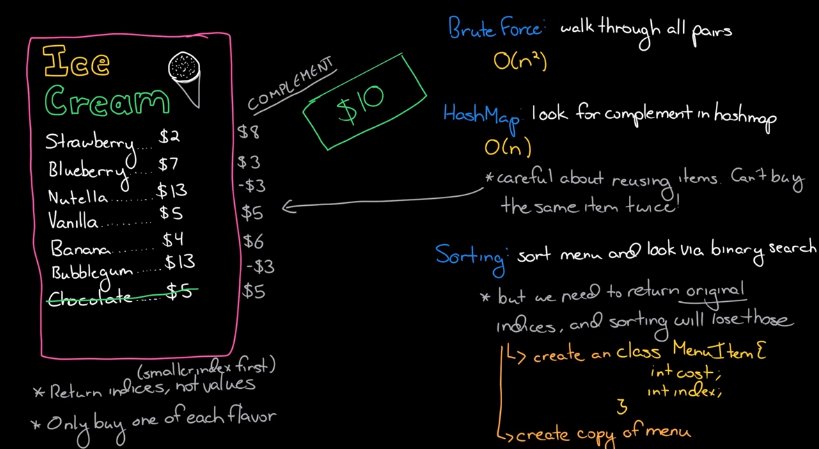 Ice
Cream
Strawberry.... $2
Blueberry... $7
Nutella....... $13
Vanilla........ $5
Banana....... $4
Bubblegum.... $13
Chocolate.... $5
COMPLEMENT
$8
$3
-$3
$5
$6
-$3
$5
$10
(smaller index first)
* Return indices, not values
* Only buy one of each flavor
Brute Force: walk through all pairs
O(n²)
HashMap: look for complement in hashmap
O(n)
* careful about reusing items. Can't buy
the same item twice!
Sorting: sort menu and look via binary search
* but we need to return original
indices, and sorting will lose those
↳ create an class MenuItem {
int cost;
int index;
}
↳ create copy of menu